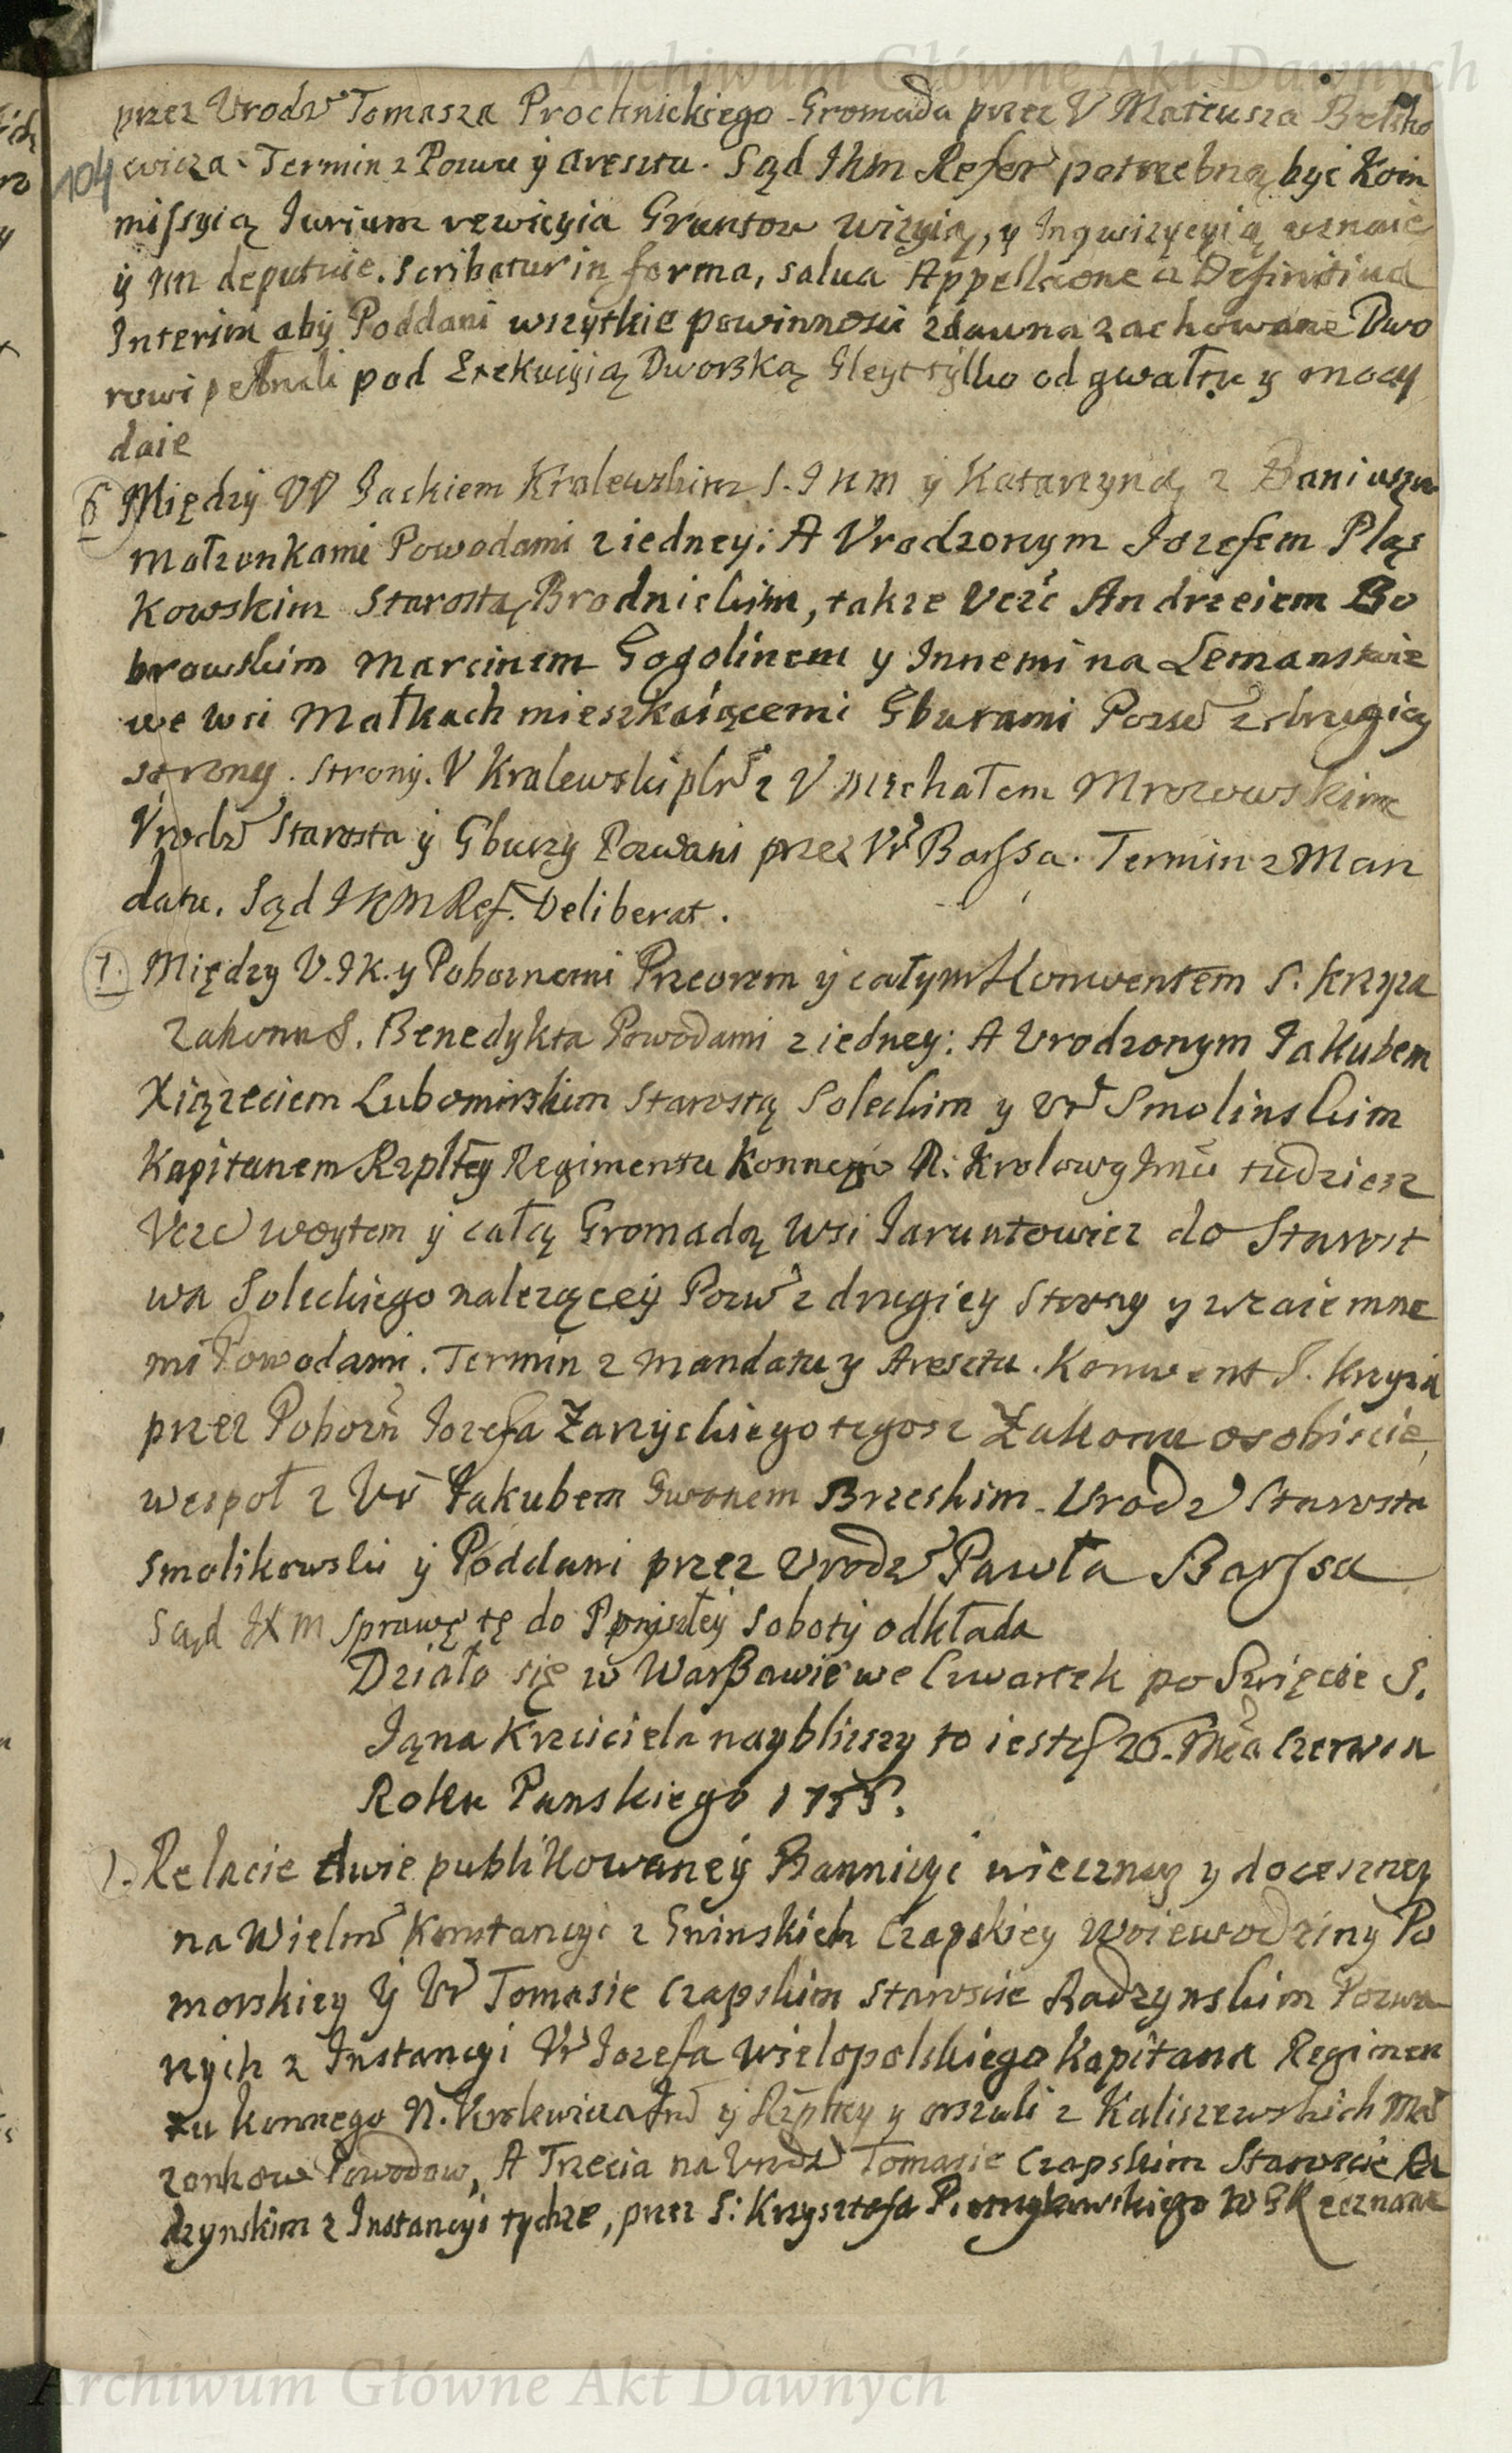 Archiwum Główne Akt Dawnych
przez Urodz Tomasza Prochnickiego Gromada przez V Mateusza
104
ewicza. Termin z Pozwu y Aresztu. Sąd JKM Refer potrzebną być Kom
missyią Jurium rewizyia Gruntow wizyią, y Inqwizycyią uznaie
ÿ im deputuie. Scribatur in forma, salua Appellaone a Definitiua
Interim abÿ Poddani wszytkie powinnosci zdawna zachowane Dwo
rowi pełnili pod Exekucyią Dworską Gleyt tylko od gwałtu y mocy
daie
6 Między VV Jackiem Kralewskim S. JKM y Katarzyną z
Małzonkami Powodami z iedney: A Vrodzonym Jozefem Pląs
kowskim Starostą Brodnickim, takze Vczć Andrzeiem Bo
browskim Marcinem Gogolinem y Innemi na Lemanstwie
we wsi Małkach mieszkaiącemi Gburami Pozw z drugiey
strony. Stronÿ. V Kralewski plr z V Michałem Mrozowskim
Vrodz Starosta ÿ Gburzy Pozwani przez Vr Barssa. Termin z Man
datu. Sąd JKM Ref. Deliberat.
7. Między V. JK. y Poboznemi Przeorem ÿ całym Konwentem S. Krzyza
Zakonu S. Benedykta Powodami z iedney: A Vrodzonym Jakubem
Xiązeciem Lubomirskim Starostą Soleckim y Vr Smolinskim
Kapitanem Rzpltey Regimentu Konnego N. Krolowy Jmci tudziesz
Vczc woytem ÿ całą Gromadą wsi Jaruntowicz do Starost
wa Soleckiego nalezącey Pozw z drugiey Strony y wzaiemne
mi Powodami. Termin z Mandatu y Aresztu. Konwent S. Krzyza
przez Pobozn Jozefa Zarzyckiego tegosz Zakonu osobiscie
wespoł z Vr Jakubem Iwonem Brzeskim. Urodz Starosta
Smolikowski ÿ Poddani przez Vrodz Pawła Barssa
Sąd JKM Sprawę tę do Przyszłey Soboty odkłada
Działo się w Warszawie we Czwartek po Swięcie S.
Jana Krzciciela nayblizszy to iest d 26. Mca Czerwca
Roku Panskiego 1755.
1. Relacie dwie publikowaney Bannicyi wieczney y doczesney
na Wielm Konstancyi z Gninskich Czapskiey Woiewodziny Po
morskiey ÿ Vr Tomasie Czapskim Staroscie Radzynskim Pozwa
nych z Instancyi Vr Jozefa Wielopolskiego Kapitana Regimen
tu konnego N. Krolewicza Jmc ÿ Rzpltey y Orszuli z Kaliszewskich Mał
zonkow Powodow, A Trzecia na Vrodz Tomasie Czapskim Staroscie Ra
dzynskim z Instancyi tychze, przez S: Krzysztofa W GK zeznane
Archiwum Główne Akt Dawnych